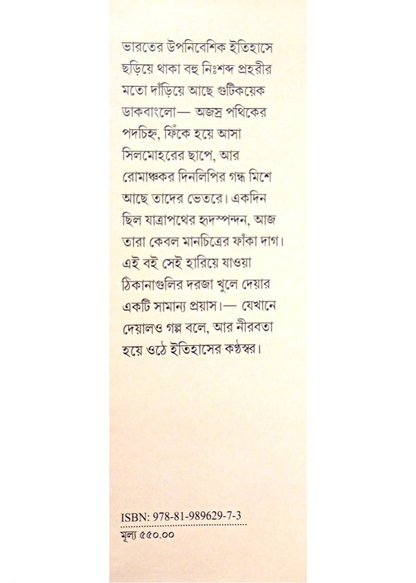 ভারতের উপনিবেশিক ইতিহাসে
ছড়িয়ে থাকা বহু নিঃশব্দ প্রহরীর
মতো দাঁড়িয়ে আছে গুটিকয়েক
ডাকবাংলো— অজস্র পথিকের
পদচিহ্ন, ফিঁকে হয়ে আসা
সিলমোহরের ছাপে, আর
রোমাঞ্চকর দিনলিপির গন্ধ মিশে
আছে তাদের ভেতরে। একদিন
ছিল যাত্রাপথের হৃদস্পন্দন, আজ
তারা কেবল মানচিত্রের ফাঁকা দাগ।
এই বই সেই হারিয়ে যাওয়া
ঠিকানাগুলির দরজা খুলে দেয়ার
একটি সামান্য প্রয়াস।— যেখানে
দেয়ালও গল্প বলে, আর নীরবতা
হয়ে ওঠে ইতিহাসের কণ্ঠস্বর।
ISBN: 978-81-989629-7-3
মূল্য ৫৫০.০০